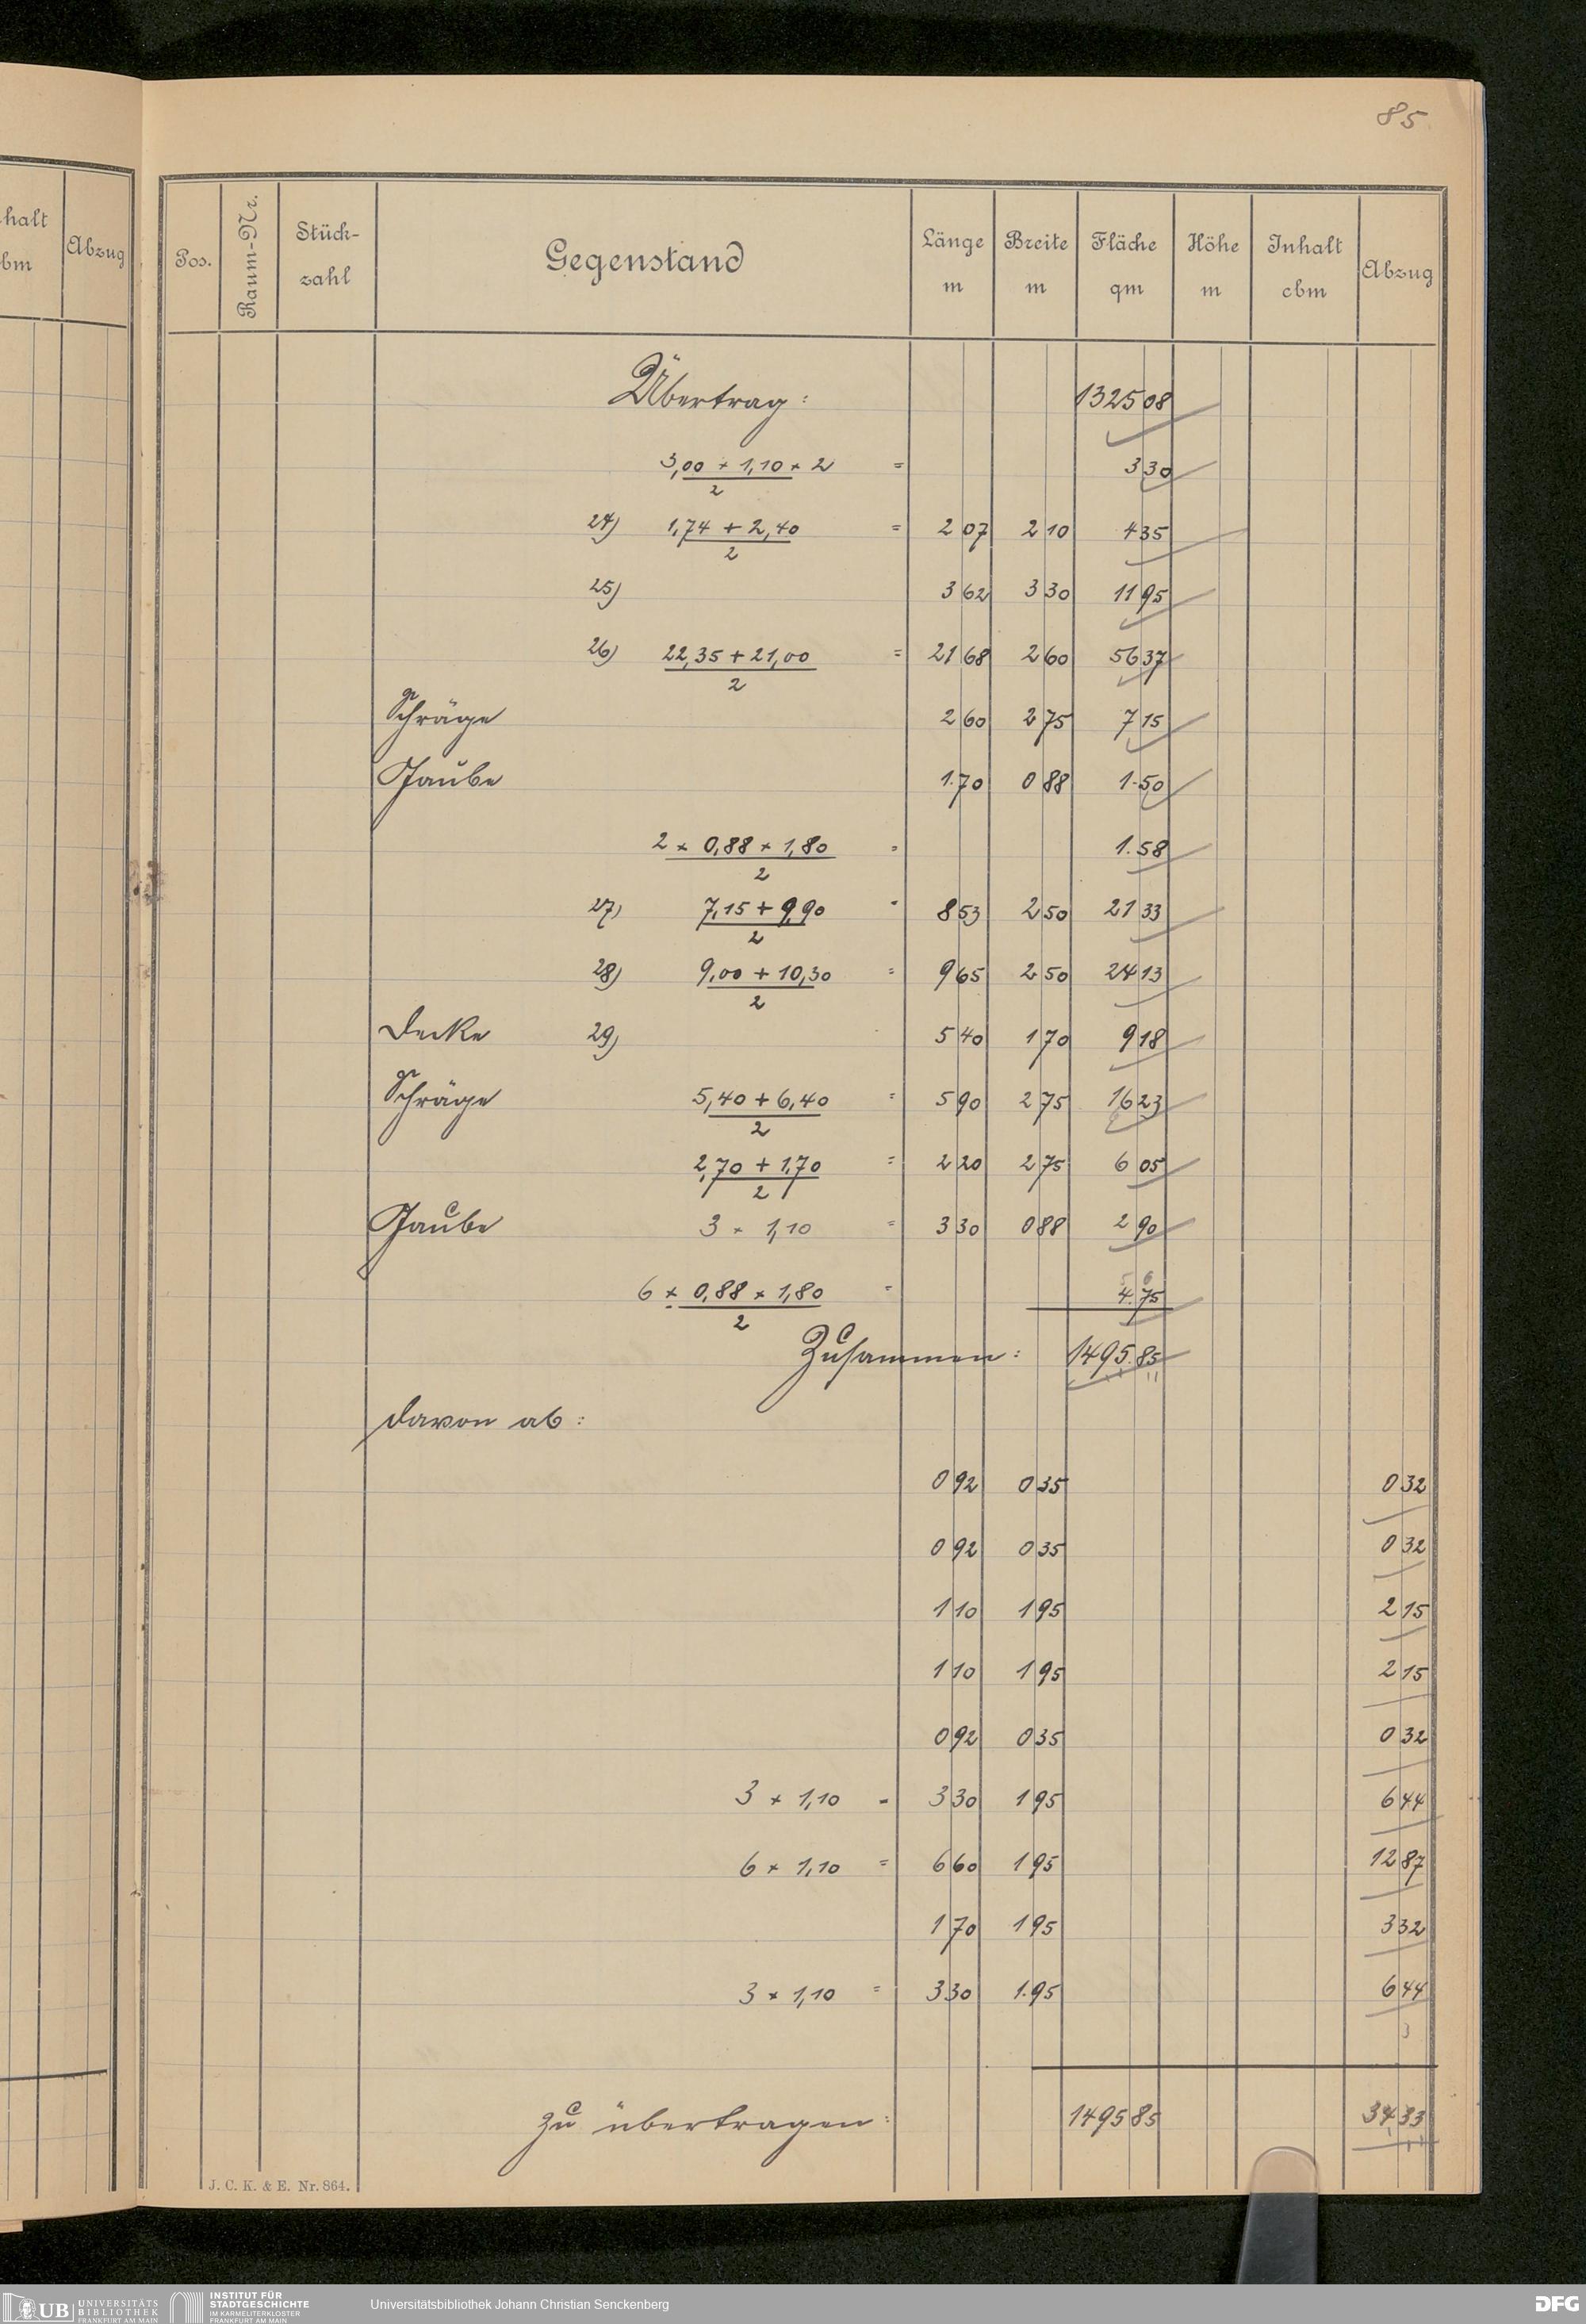 85
halt
bm
Abzug
Pos.
Raum-Nr.
Stück-
zahl
Gegenstand
Länge
m
Breite
m
Fläche
qm
Höhe
m
Inhalt
cbm
Abzug
Übertrag: 1325 08
3,00 × 1,10 × 2 = 3 30
2
24) 1,74 + 2,40 = 2 07 2 10 4 35
2
25) 3 62 3 30 11 95
26) 22,35 + 21,00 = 21 68 2 60 56 37
2
Schräge 2 60 2 75 7 15
Gaube 1.70 0 88 1.50
2 × 0,88 × 1,80 = 1.58
2
27) 7,15 + 9,90 = 8 53 2 50 21 33
2
28) 9,00 + 10,30 = 9 65 2 50 24 13
2
Decke 29) 5 40 1 70 9 18
Schräge 5,40 + 6,40 = 5 90 2 75 16 23
2
2,70 + 1,70 = 2 20 2 75 6 05
2
Gaube 3 × 1,10 = 3 30 0 88 2 90
6 × 0,88 × 1,80 = 4.75
2
Zusammen: 1495.85
davon ab:
0 92 0 35 0 32
0 92 0 35 0 32
1 10 1 95 2 15
1 10 1 95 2 15
0 92 0 35 0 32
3 × 1,10 = 3 30 1 95 6 44
6 × 1,10 = 6 60 1 95 12 87
1 70 1 95 3 32
3 × 1,10 = 3 30 1.95 6 44
zu übertragen: 1495 85 34 33
J. C. K. & E. Nr. 864.
UB UNIVERSITÄTS
BIBLIOTHEK
FRANKFURT AM MAIN
INSTITUT FÜR
STADTGESCHICHTE
IM KARMELITERKLOSTER
FRANKFURT AM MAIN
Universitätsbibliothek Johann Christian Senckenberg
DFG